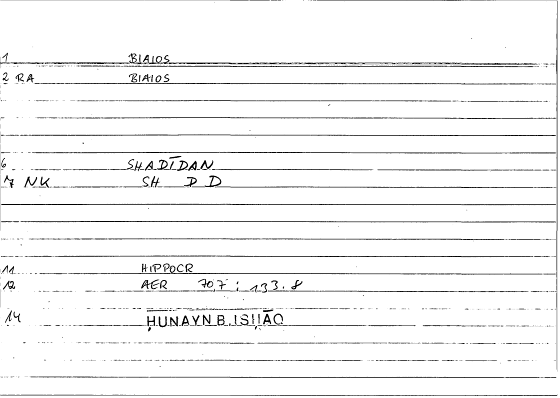 1 BIAIOS
2 RA BIAIOS
6 SHADĪDAN
7 NK SH D D
11 HIPPOCR
12 AER 70,7 : 133.8
14 ḤUNAYN B. ISḤĀQ